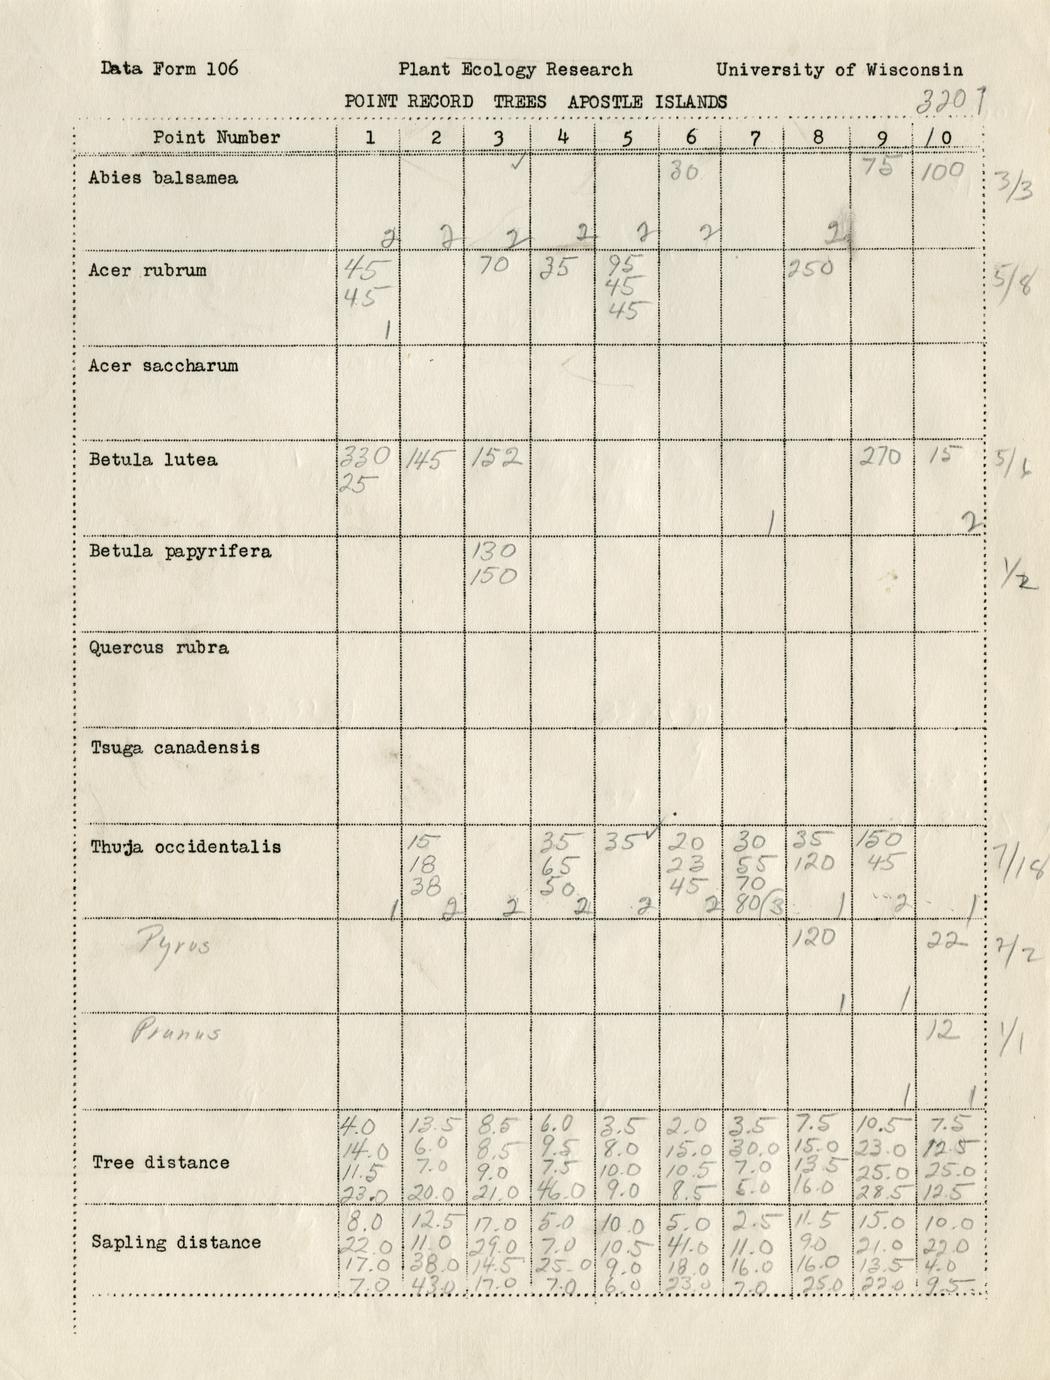 Data Form 106 Plant Ecology Research University of Wisconsin
POINT RECORD TREES APOSTLE ISLANDS 3201
Point Number 1 2 3 4 5 6 7 8 9 10
Abies balsamea ✓ 30 75 100 3/3
2 2 2 2 2 2 2
Acer rubrum 45 70 35 95 250 5/8
45 45
1 45
Acer saccharum
Betula lutea 330 145 152 270 15 5/6
25
1 2
Betula papyrifera 130 1/2
150
Quercus rubra
Tsuga canadensis
Thuja occidentalis 15 35 35✓ 20 30 35 150 7/18
18 65 23 55 120 45
38 50 45 70
1 2 2 2 2 2 80/3 1 2 1
Pyrus 120 22 2/2
1 1
Prunus 12 1/1
1 1
4.0 13.5 8.5 6.0 3.5 2.0 3.5 7.5 10.5 7.5
14.0 6.0 8.5 9.5 8.0 15.0 30.0 15.0 23.0 12.5
Tree distance 11.5 7.0 9.0 7.5 10.0 10.5 7.0 13.5 25.0 25.0
23.0 20.0 21.0 46.0 9.0 8.5 5.0 16.0 28.5 12.5
8.0 12.5 17.0 5.0 10.0 5.0 2.5 11.5 15.0 10.0
Sapling distance 22.0 11.0 29.0 7.0 10.5 41.0 11.0 9.0 21.0 22.0
17.0 38.0 14.5 25.0 9.0 18.0 16.0 16.0 13.5 4.0
7.0 43.0 17.0 7.0 6.0 23.0 7.0 25.0 22.0 9.5